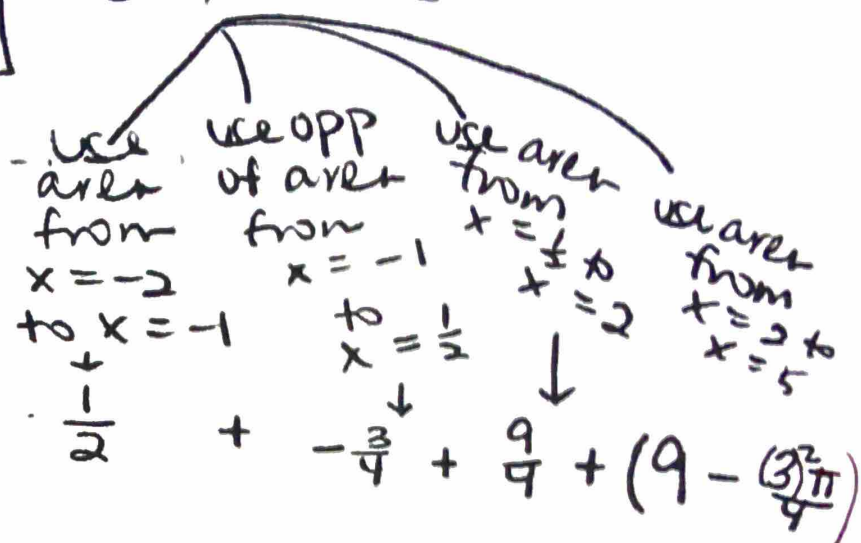 use
area
from
x = -2
to x = -1
↓
use opp
of area
from
x = -1
to
x = 1/2
↓
use area
from
x = 1/2 to
x = 2
↓
use area
from
x = 2 to
x = 5
1/2 + -3/4 + 9/4 + (9 - (3)²π/4)